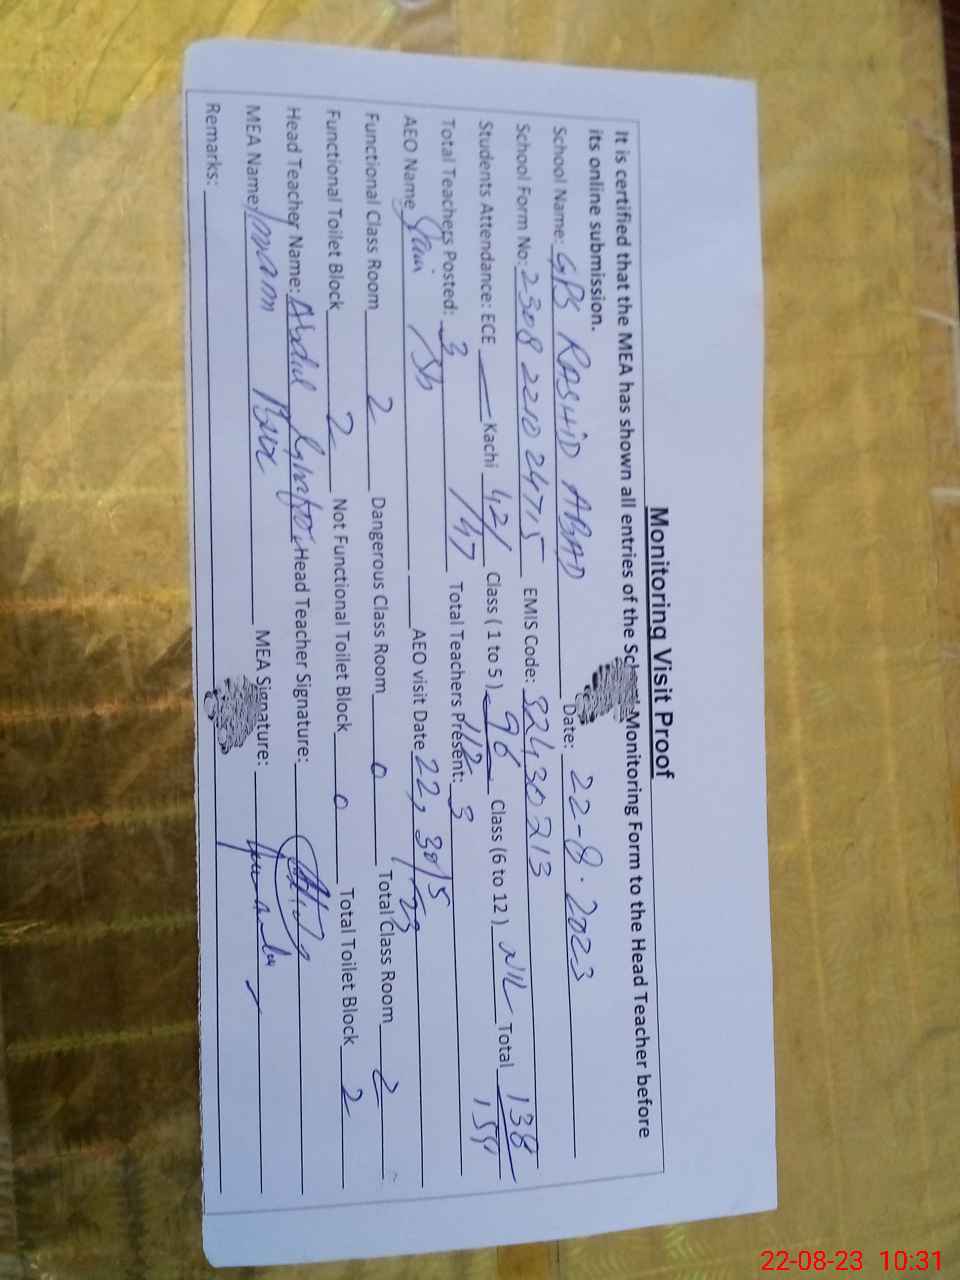 Monitoring Visit Proof
It is certified that the MEA has shown all entries of the School Monitoring Form to the Head Teacher before
its online submission.
School Name: GPS RASHID ABAD Date: 22-8-2023
School Form No: 2308221024715 EMIS Code: 32430213
Students Attendance: ECE — Kachi 42/ Class (1 to 5) 96 Class (6 to 12) NIL Total 138
/47 112 159
Total Teachers Posted: 3 Total Teachers Present: 3
AEO Name AEO visit Date 22, 30/5/23
Functional Class Room 2 Dangerous Class Room 0 Total Class Room 2
Functional Toilet Block 2 Not Functional Toilet Block 0 Total Toilet Block 2
Head Teacher Name: Abdul Head Teacher Signature:
MEA Name: Imam Bux MEA Signature:
Remarks:
22-08-23 10:31